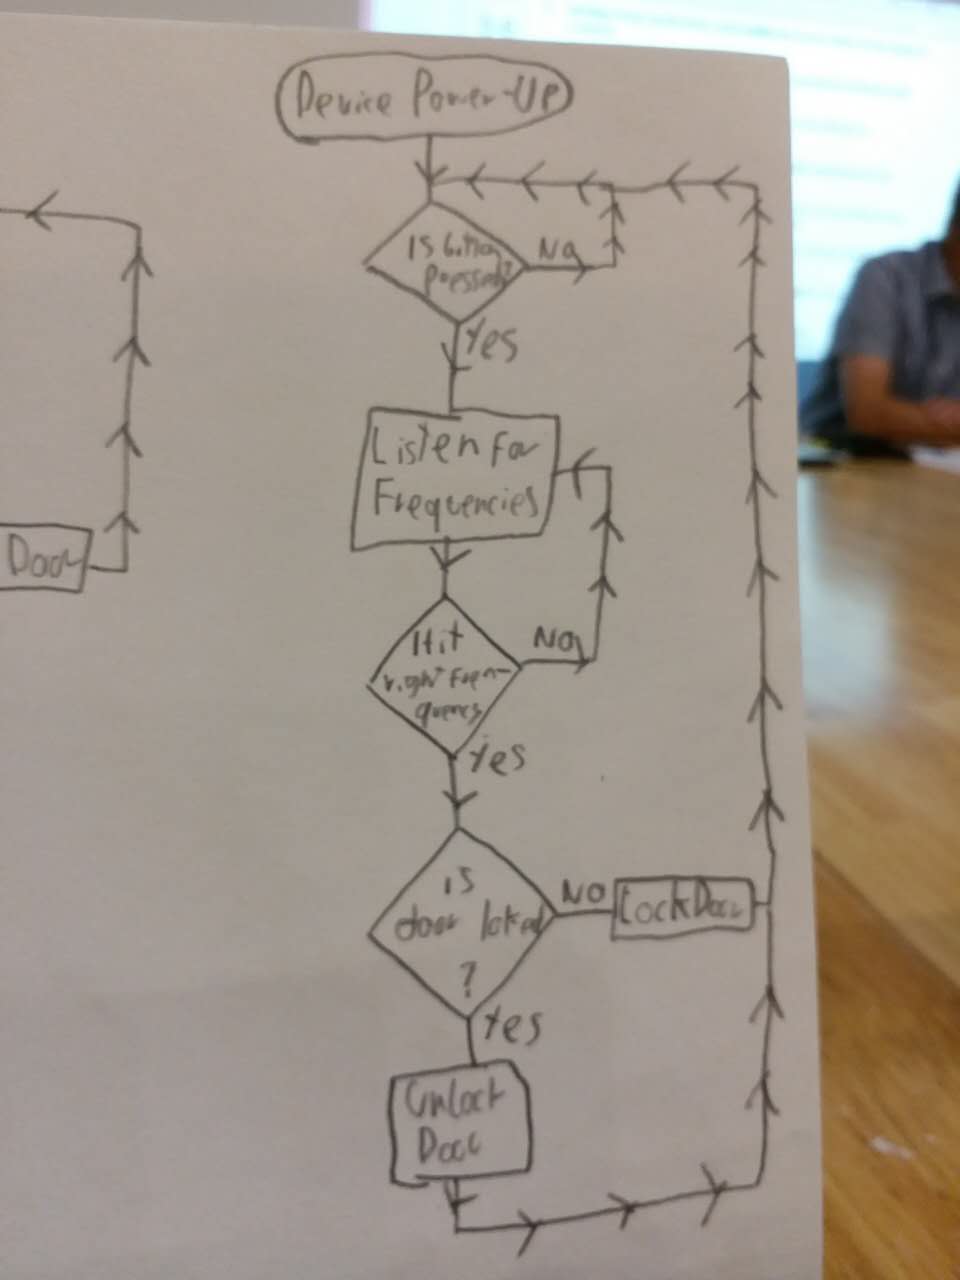 Device Power-Up
Is button
pressed?
No
Yes
Listen For
Frequencies
Door
Hit
right Fren-
quency
No
Yes
is
door loked
?
NO
Lock Door
Yes
Unlock
Door